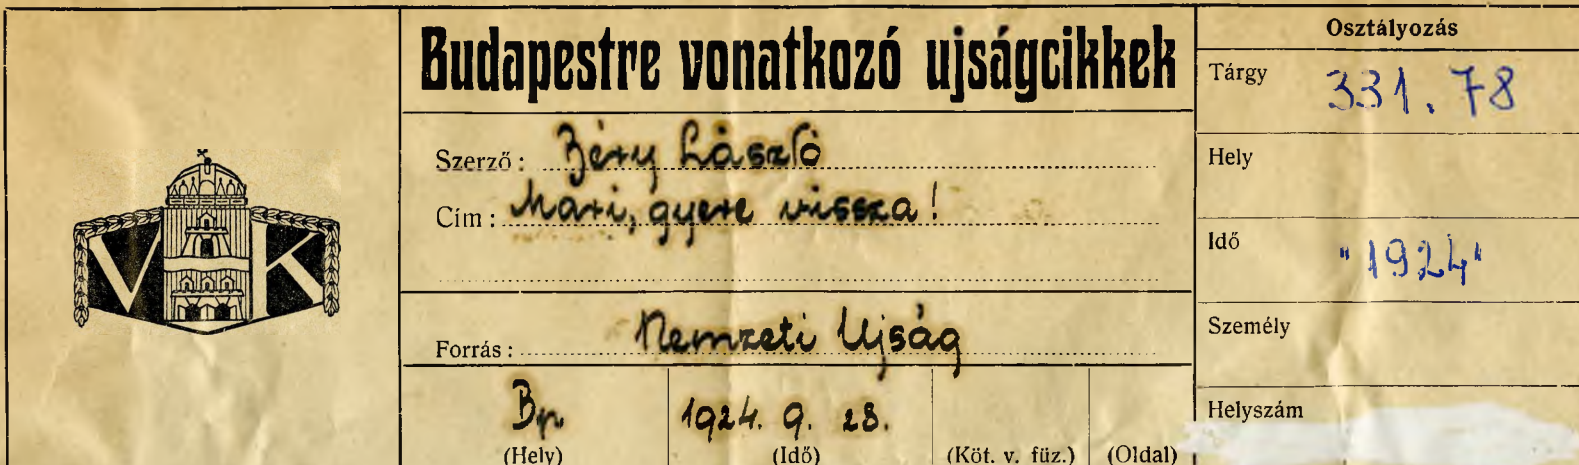 Budapestre vonatkozó ujságcikkek
Szerző: Béry László
Cím: Mari, gyere vissza!
Forrás: Nemzeti Ujság
Bp. 1924. 9. 28.
(Hely) (Idő) (Köt. v. füz.) (Oldal)
Osztályozás
Tárgy 331.78
Hely
Idő "1924"
Személy
Helyszám
VK